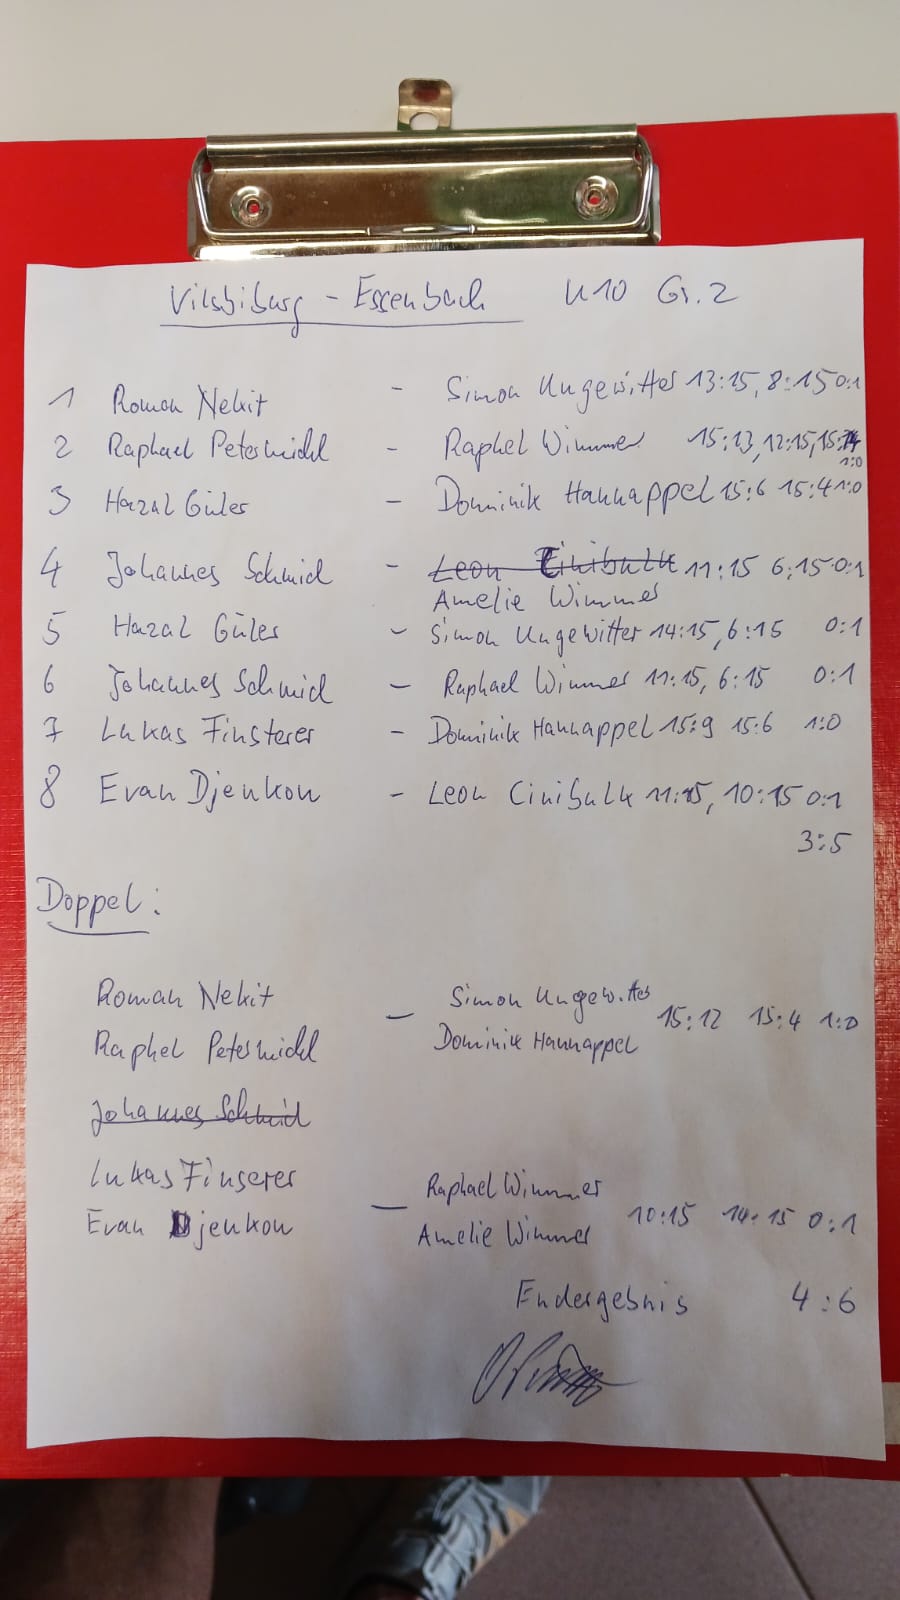 Vilsbiburg - Essenbach U10 Gr. 2
1 Roman Nekit - Simon Ungewitter 13:15, 8:15 0:1
2 Raphael Petermichl - Raphel Wimmer 15:13, 12:15, 15:14
1:0
3 Hazal Güler - Dominik Hannappel 15:6 15:4 1:0
4 Johannes Schmid - Leon Cinibulk 11:15 6:15 0:1
Amelie Wimmer
5 Hazal Güler - Simon Ungewitter 14:15, 6:15 0:1
6 Johannes Schmid - Raphael Wimmer 11:15, 6:15 0:1
7 Lukas Finsterer - Dominik Hannappel 15:9 15:6 1:0
8 Evan Djenkon - Leon Cinibulk 11:15, 10:15 0:1
3:5
Doppel:
Roman Nekit - Simon Ungewitter 15:12 15:4 1:0
Raphel Petermichl Dominik Hannappel
Johannes Schmid
Lukas Finserer - Raphael Wimmer 10:15 14:15 0:1
Evan Djenkon Amelie Wimmer
Endergebnis 4:6